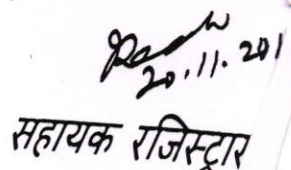 20.11.201
सहायक रजिस्ट्रार